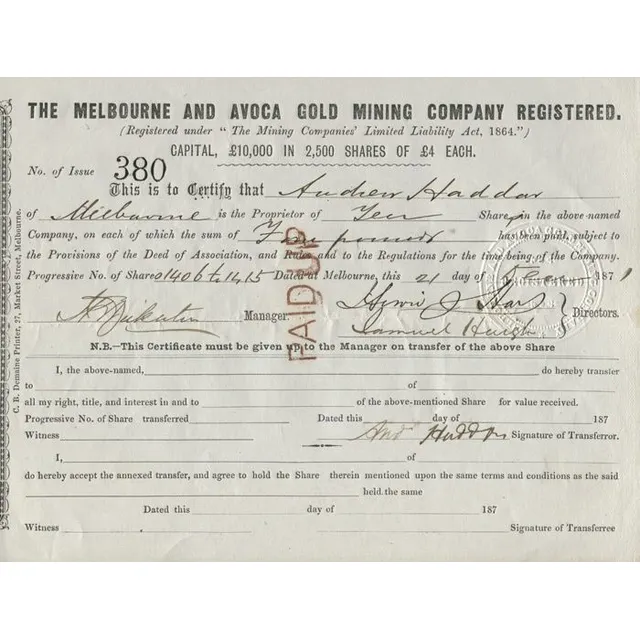 THE MELBOURNE AND AVOCA GOLD MINING COMPANY REGISTERED.
(Registered under "The Mining Companies' Limited Liability Act, 1864.")
CAPITAL, £10,000 IN 2,500 SHARES OF £4 EACH.
No. of Issue 380
This is to Certify that Andrew Haddon
of Melbourne is the Proprietor of Ten Shares in the above-named
Company, on each of which the sum of Four pounds has been paid, subject to
the Provisions of the Deed of Association, and Rules and to the Regulations for the time being of the Company.
Progressive No. of Shares 1406 to 1415 Dated at Melbourne, this 21 day of 1871
Manager: Directors.
Samuel
PAID UP
N.B.—This Certificate must be given up to the Manager on transfer of the above Share
I, the above-named, do hereby transfer
to of
all my right, title, and interest in and to of the above-mentioned Share for value received.
Progressive No. of Share transferred Dated this day of 187
Witness And Haddon Signature of Transferror.
I, of
do hereby accept the annexed transfer, and agree to hold the Share therein mentioned upon the same terms and conditions as the said
held the same
Dated this day of 187
Witness Signature of Transferree
C. B. Demaine Printer, 37, Market Street, Melbourne.